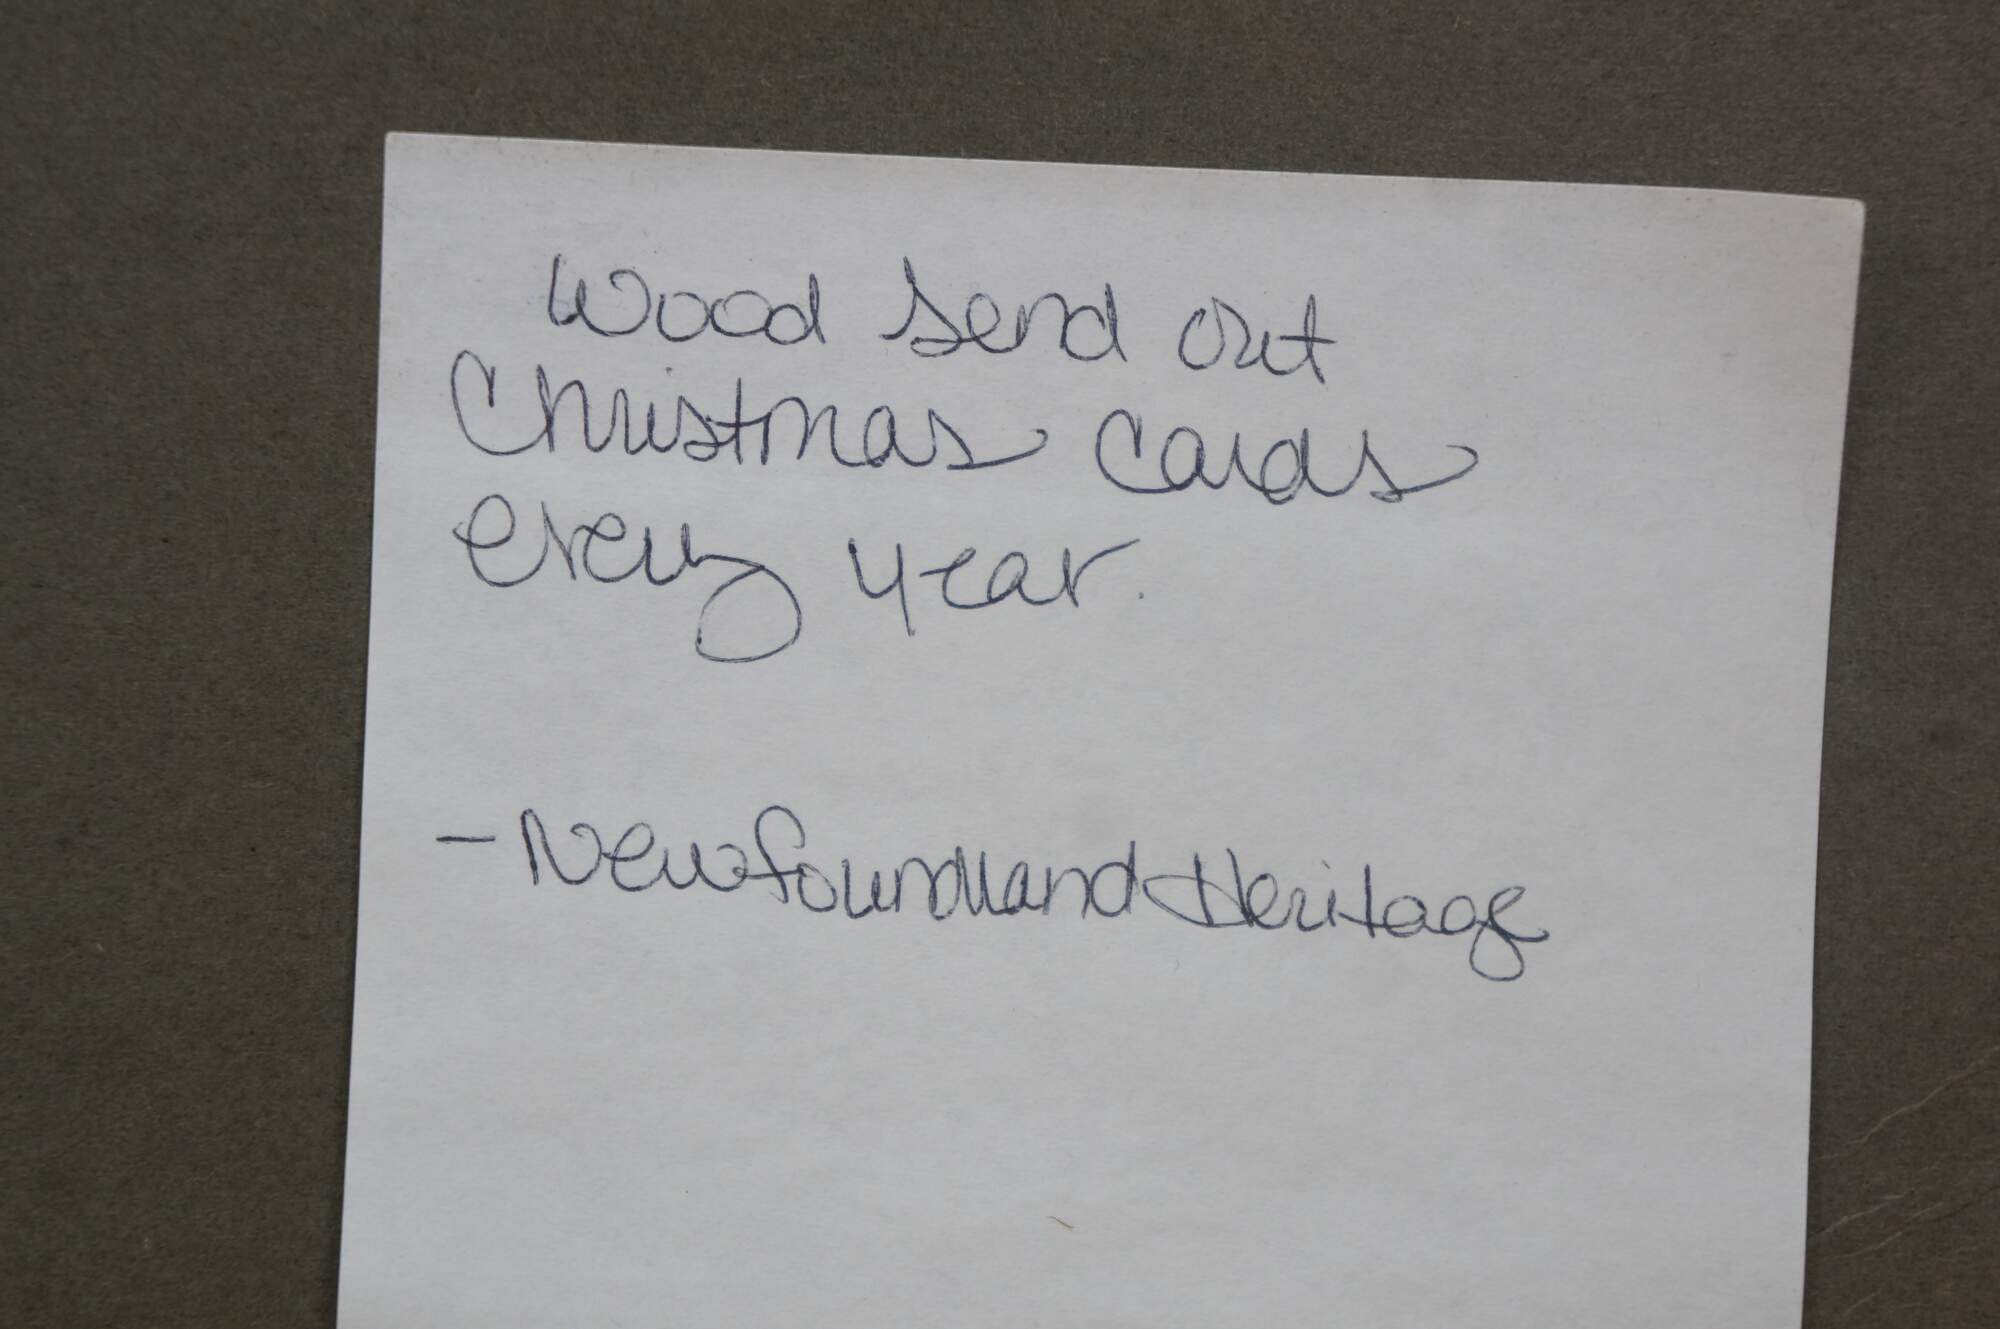 Wood send out
Christmas cards
every year.
- Newfoundland Heritage